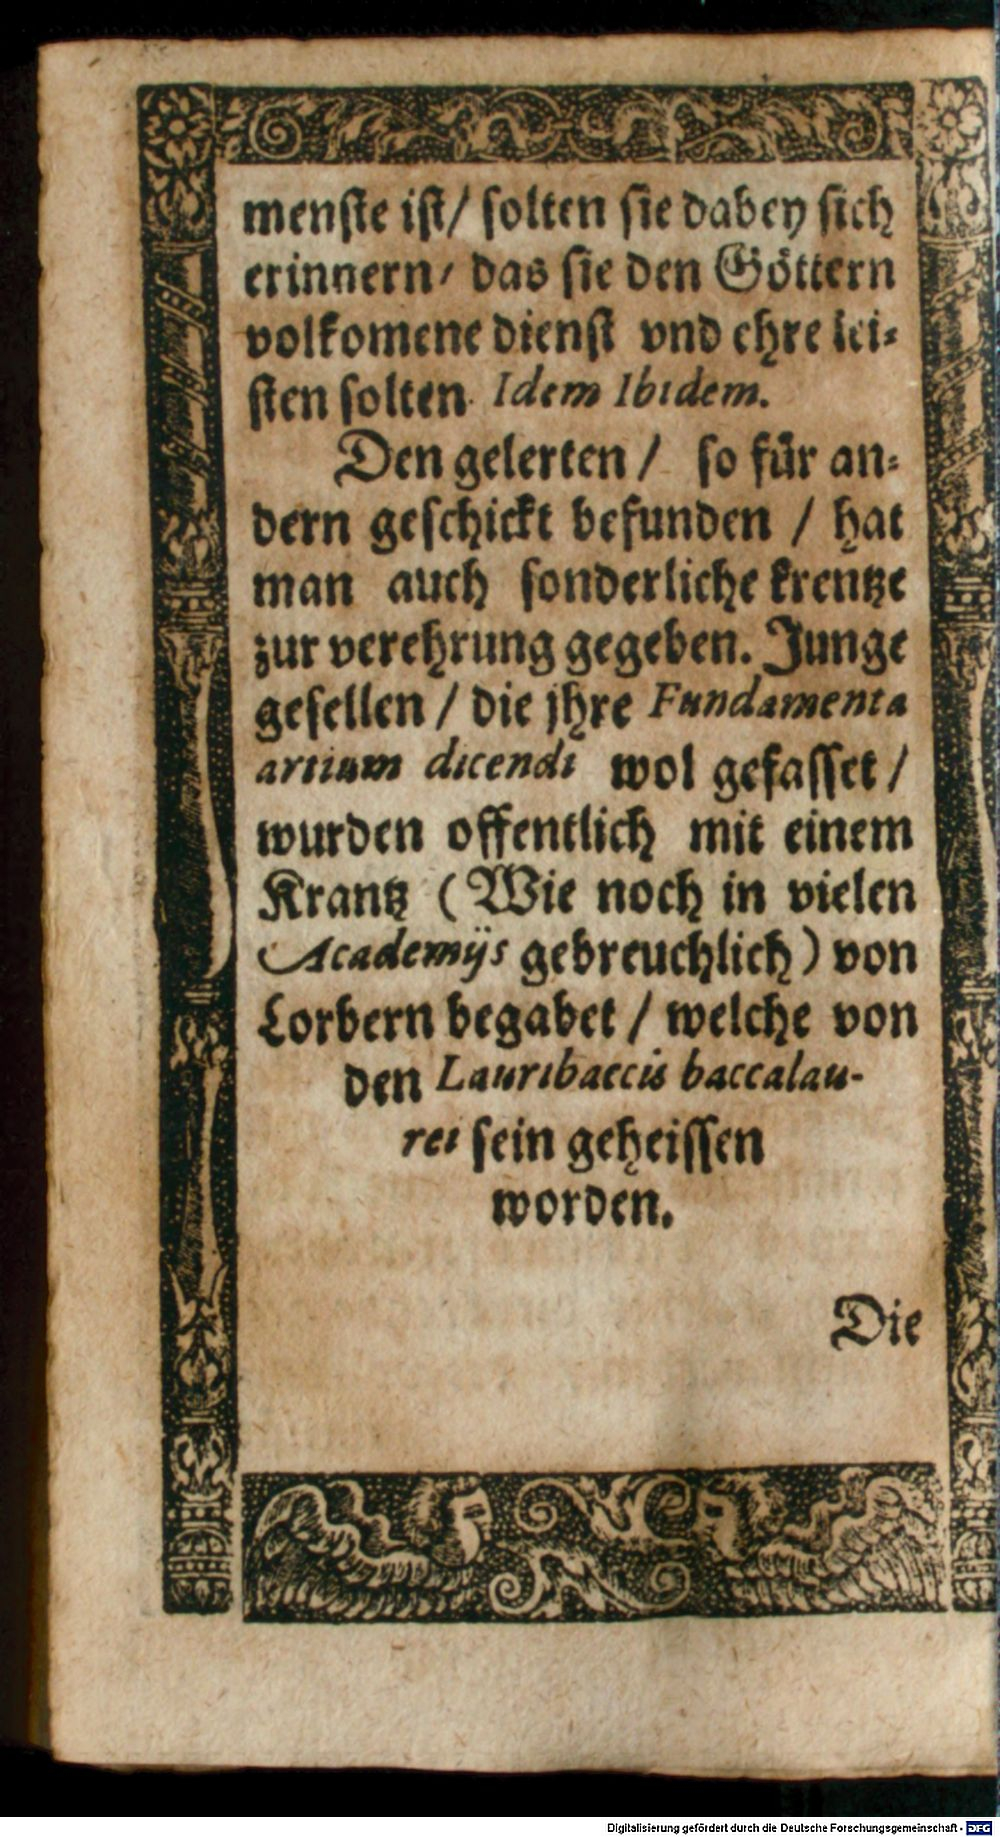 menste ist/ solten sie dabey sich
erinnern/ das sie den Göttern
volkomene dienst vnd ehre lei-
sten solten. Idem Ibidem.
Den gelerten / so für an-
dern geschickt befunden / hat
man auch sonderliche krentze
zur verehrung gegeben. Junge
gesellen / die jhre Fundamenta
artium dicendi wol gefasset /
wurden offentlich mit einem
Krantz (Wie noch in vielen
Academijs gebreuchlich) von
Lorbern begabet / welche von
den Lauribaccis baccalau-
rei sein geheissen
worden.
Die
Digitalisierung gefördert durch die Deutsche Forschungsgemeinschaft - DFG